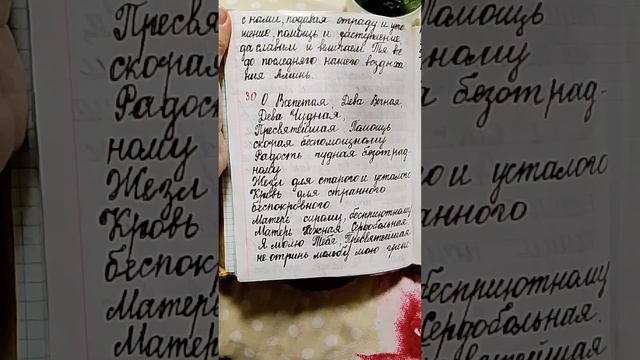 с нами, подавая отраду и уте
шение, помощь и заступление,
да славим и величаем Тя все
до последняго нашего воздыха
ния Аминь.
30 О Всепетая, Дева Вечная,
Дева Чудная,
Пресвятейшая, Помощь
скорая беспомощному
Радость чудная безотрад-
ному
Жезл для старого и усталого
Кровь для странного
беспокровного.
Матерь сирому, бесприютному
Матерь Нежная Сердобольная.
Я молю Тебя, Пресвятейшая
не отринь мольбу мою греш